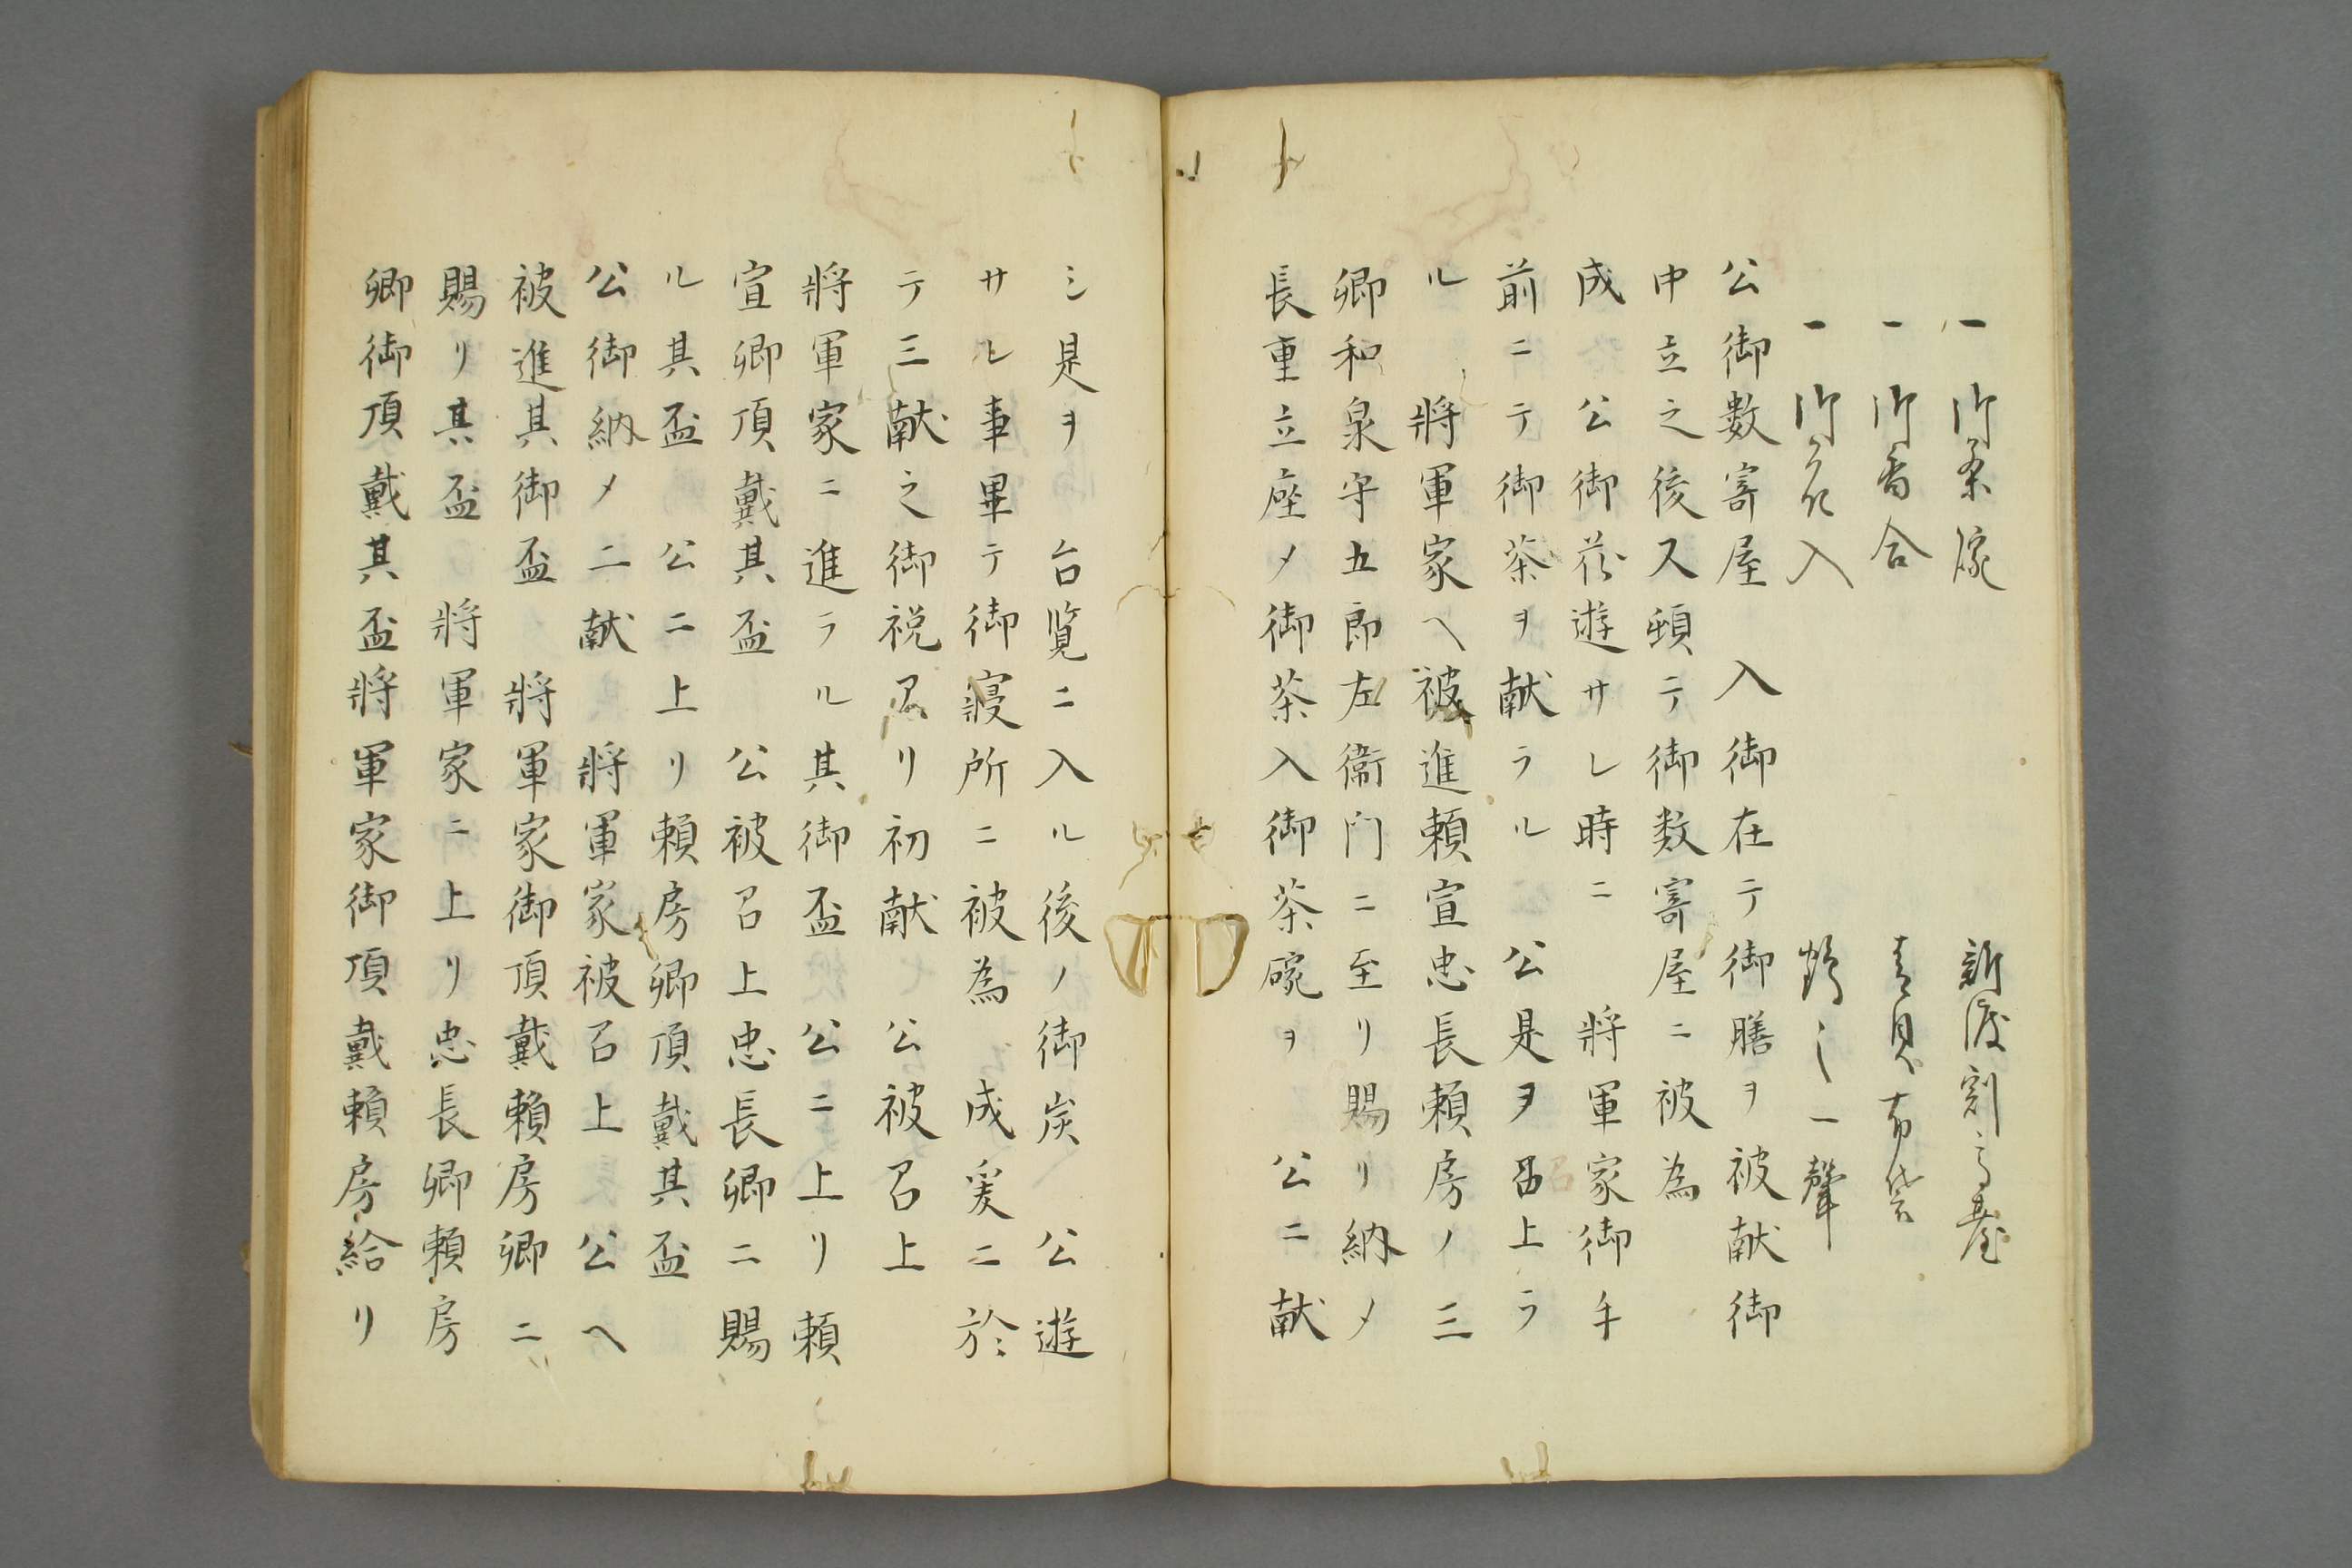 一 御茶碗 新渡割高台
一 御香合 青貝布袋
一 御花入 鶴之一聲
公御数寄屋 入御在テ御膳ヲ被献御
中立之後又頓テ御数寄屋ニ被為
成 公御花遊サレ時ニ 將軍家御手
前ニテ御茶ヲ献ラル 公是ヲ召上ラ
ル 將軍家ヘ被進頼宣忠長頼房ノ三
卿和泉守五郎左衛門ニ至リ賜リ納メ
長重立座メ御茶入御茶碗ヲ 公ニ献
シ是ヲ 台覧ニ入ル後ノ御炭ハ 公遊
サレ事畢テ御寝所ニ被為 成爰ニ於
テ三献之御祝アリ初献 公被召上
將軍家ニ進ラル其御盃 公ニ上リ頼
宣卿頂戴其盃 公被召上忠長卿ニ賜
ル其盃 公ニ上リ頼房卿頂戴其盃
公御納メ二献 將軍家被召上 公ヘ
被進其御盃 將軍家御頂戴頼房卿ニ
賜リ其盃 將軍家ニ上リ忠長卿頼房
卿御頂戴其盃將軍家御頂戴頼房給リ